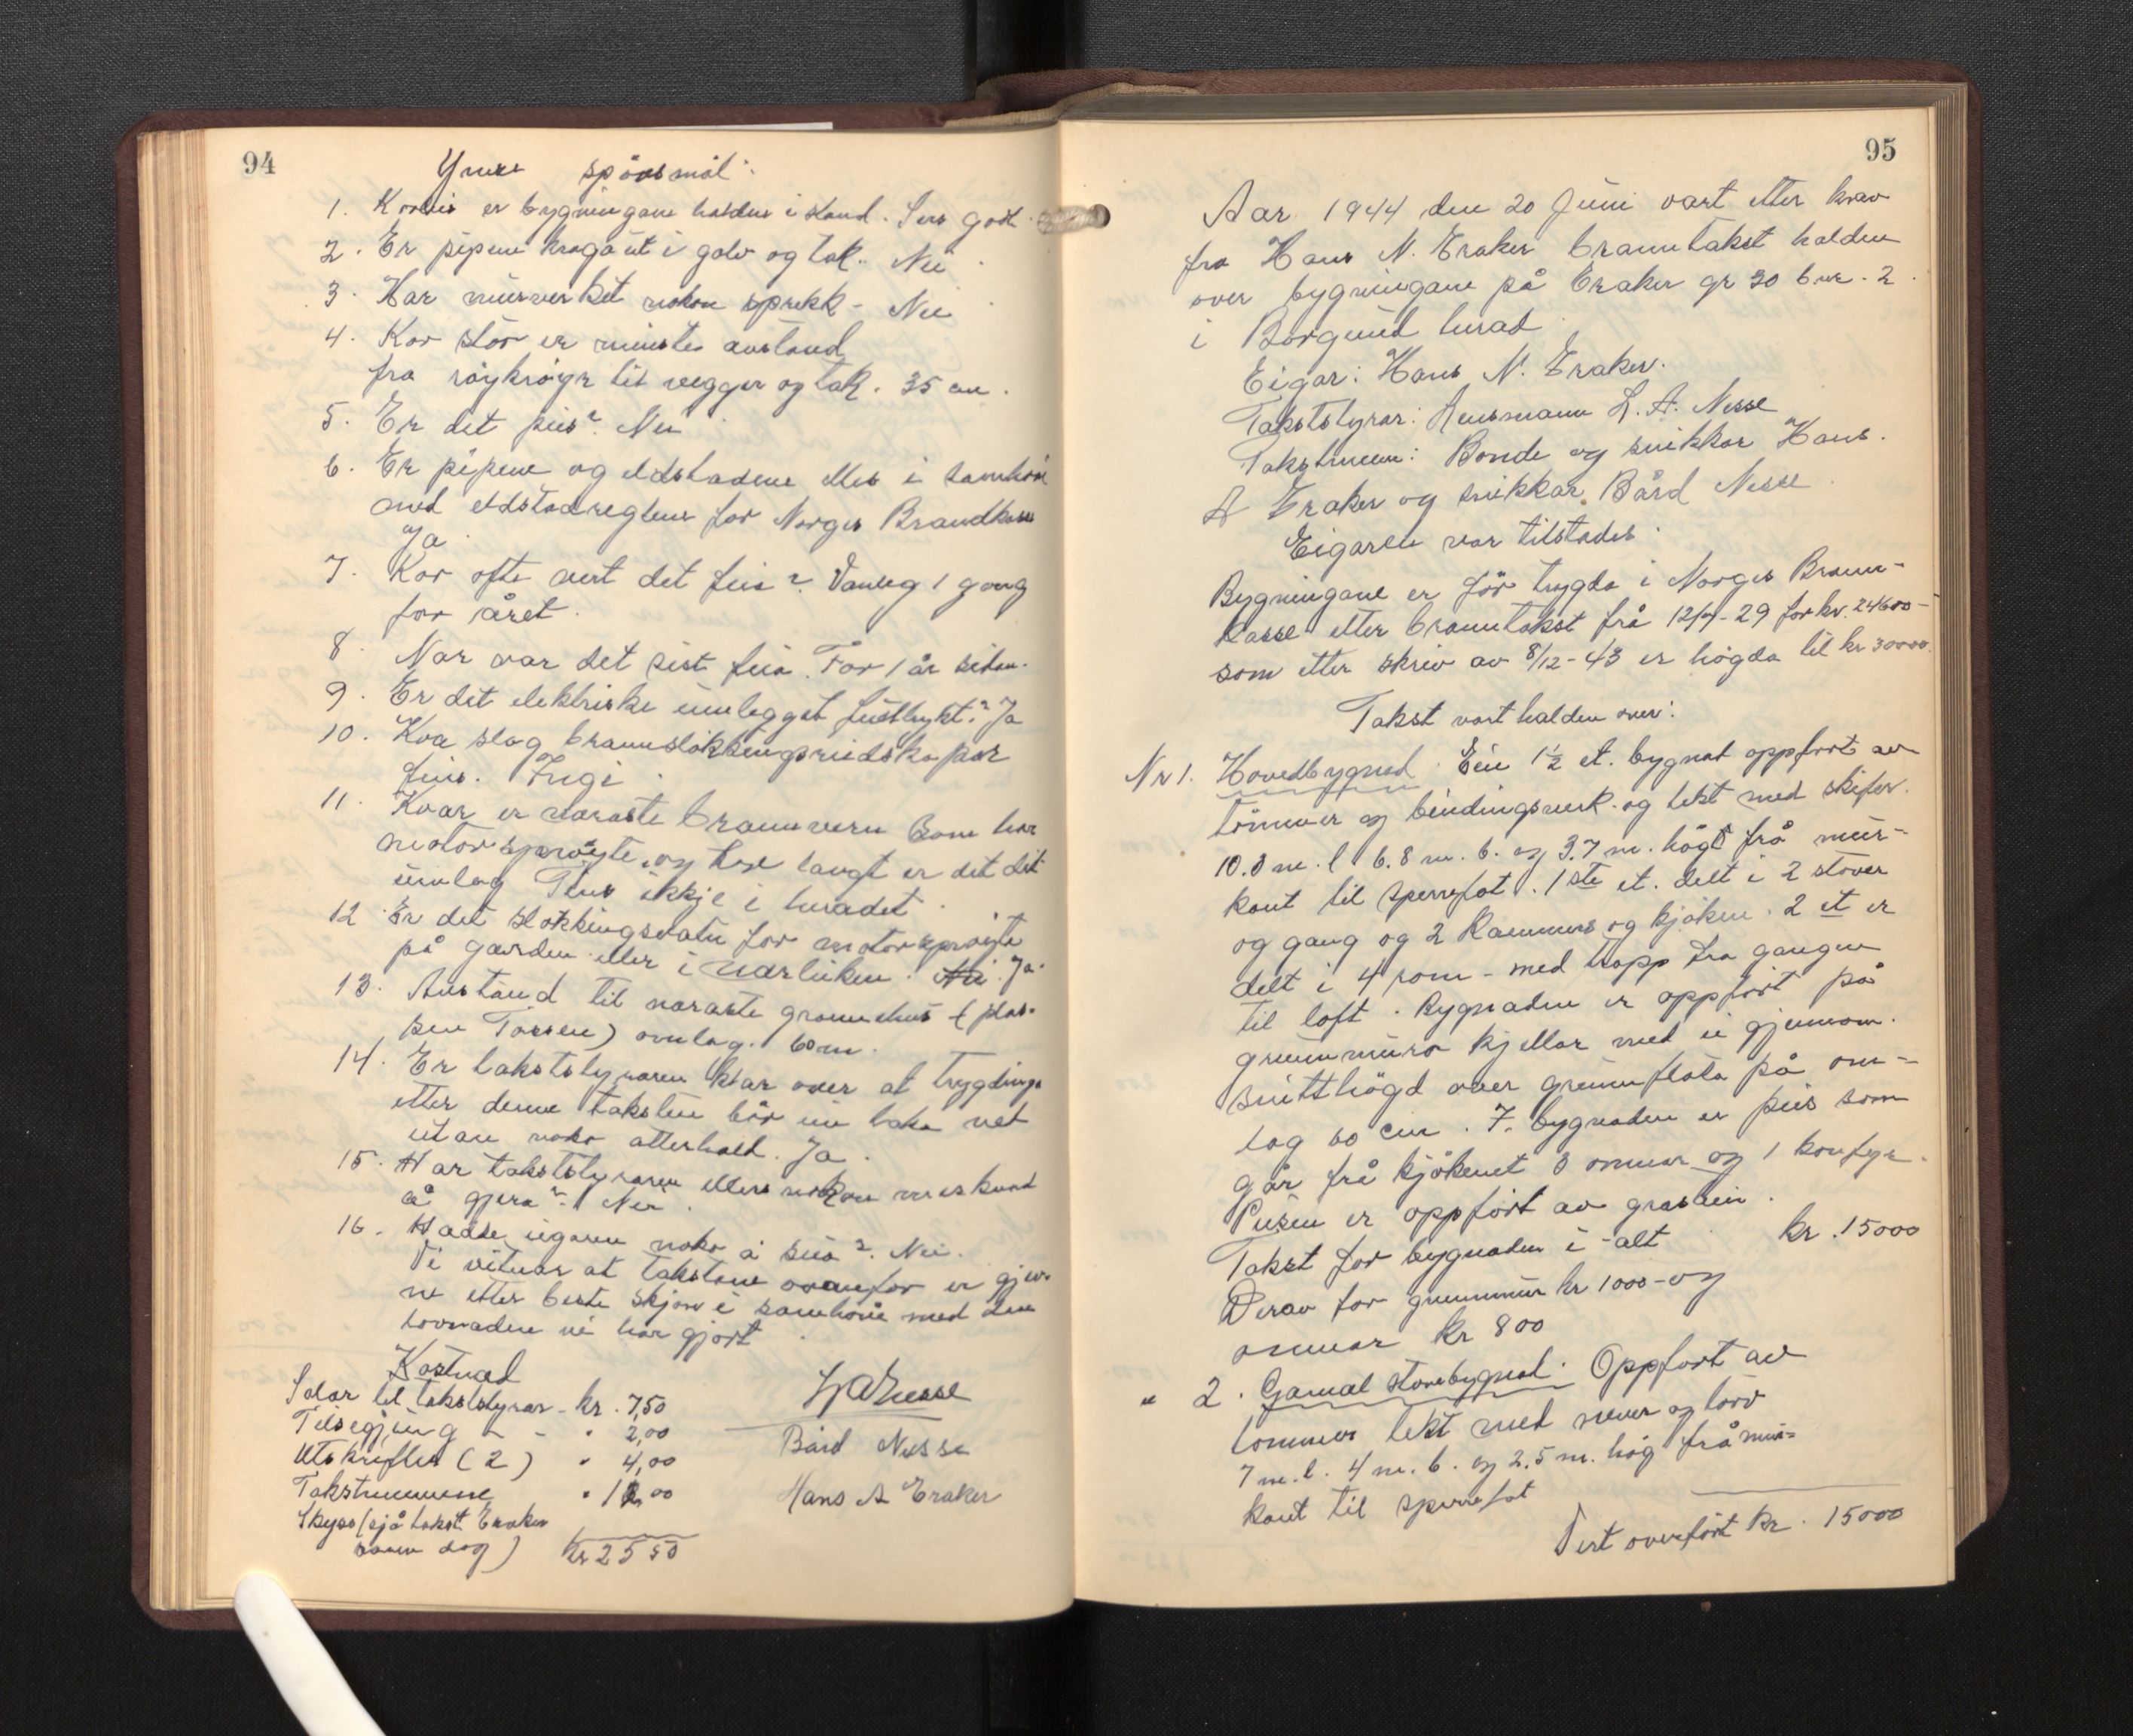 94
Ymse spörsmål:
1. Korleis er bygningane haldne i stand. Sers godt.
2. Er pipene kraga ut i golv og tak. Nei.
3. Har murverket nokon sprekk - Nei
4. Kor stor er minste avstand
fra röykröyr til vegger og tak. 35 cm.
5. Er det peis? Nei
6. Er pipene og eldstadene elles i samhöve
med eldstadreglene for Norges Brandkasse
Ja.
7. Kor ofte vert det feia? Vanleg 1 gong
for året.
8. Nar var det sist feia. For 1 år sidan.
9. Er det elektriske innlegget ? Ja
10. Kva slag brannslökkingsreidskapar
fins. Ingi.
11. Kvar er næraste brannvern som har
motorspröyte, og kor langt er det dit
umlag Fins ikkje i heradet.
12. Er det slokkingsvatn for motorspröyte
på garden eller i nærleiken. Nei. Ja.
13. Avstand til næraste grannehus (plas-
sen Tossen) omlag. 60 m.
14. Er takststyraren klar over at trygdinga
etter denne taksten bör verta teke ved
utan noko atterhald. Ja.
15. Har takststyraren elles nokon merknad
å gjera? Nei.
16. Hadde eigaren noko å seia? Nei.
Vi vitnar at takstane ovanfor er gjev-
ne etter beste skjön i samhöve med den
lovnaden vi har gjort.
Kostnad
Salær til takststyrar - kr. 7,50
Tilsegjing - - " 2,00
Utskrifter (2) " 4,00
Takstmennene " 12,00
Skyss (sjå takst Eraker
sam dag) kr 25 50
L A Nesse
Bård Nesse
Hans A Eraker
95
Aar 1944 den 20 Juni vart etter krav
fra Hans N. Eraker branntakst halden
over bygningane på Eraker gr 30 bnr. 2.
i Borgund herad.
Eigar: Hans N. Eraker.
Takststyrar: Lensmann L. A. Nesse
Takstmenn: Bonde og snikkar Hans.
A Eraker og snikkar Bård Nesse.
Eigaren var tilstades.
Bygningane er för trygda i Norges Brann-
kasse etter branntakst frå 12/7-29 for kr. 24600-
som etter skriv av 8/12-43 er högda til kr 30000.
Takst vart halden over:
Nr 1. Hovedbygnad. Ein 1½ et. bygnad oppfört av
tömmer og bindingsverk. og tekt med skifer.
10.3 m. l 6.8 m. b. og 3.7 m. högt frå mur-
kant til sperrefot. 1ste et. delt i 2 stover
og gang og 2 kammers og kjöken. 2 et er
delt i 4 rom - med trapp fra gangen
til loft. Bygnaden er oppfört på
grunnmura kjellar med ei gjennom-
snitthögd over grunnflata på om-
lag 60 cm. I bygnaden er peis som
går frå kjökenet 3 omnar og 1 komfyr.
Peisen er oppfört av gråstein.
Takst for bygnaden i alt kr. 15000
Derav for grunnmur kr 1000 - og
omnar kr 800
" 2. Gamal stovebygnad. Oppfört av
tömmer tekt med never og torv
7 m. l. 4 m. b. og 2.5 m. hög frå mur-
kant til sperrefot
Vert overfört kr. 15000